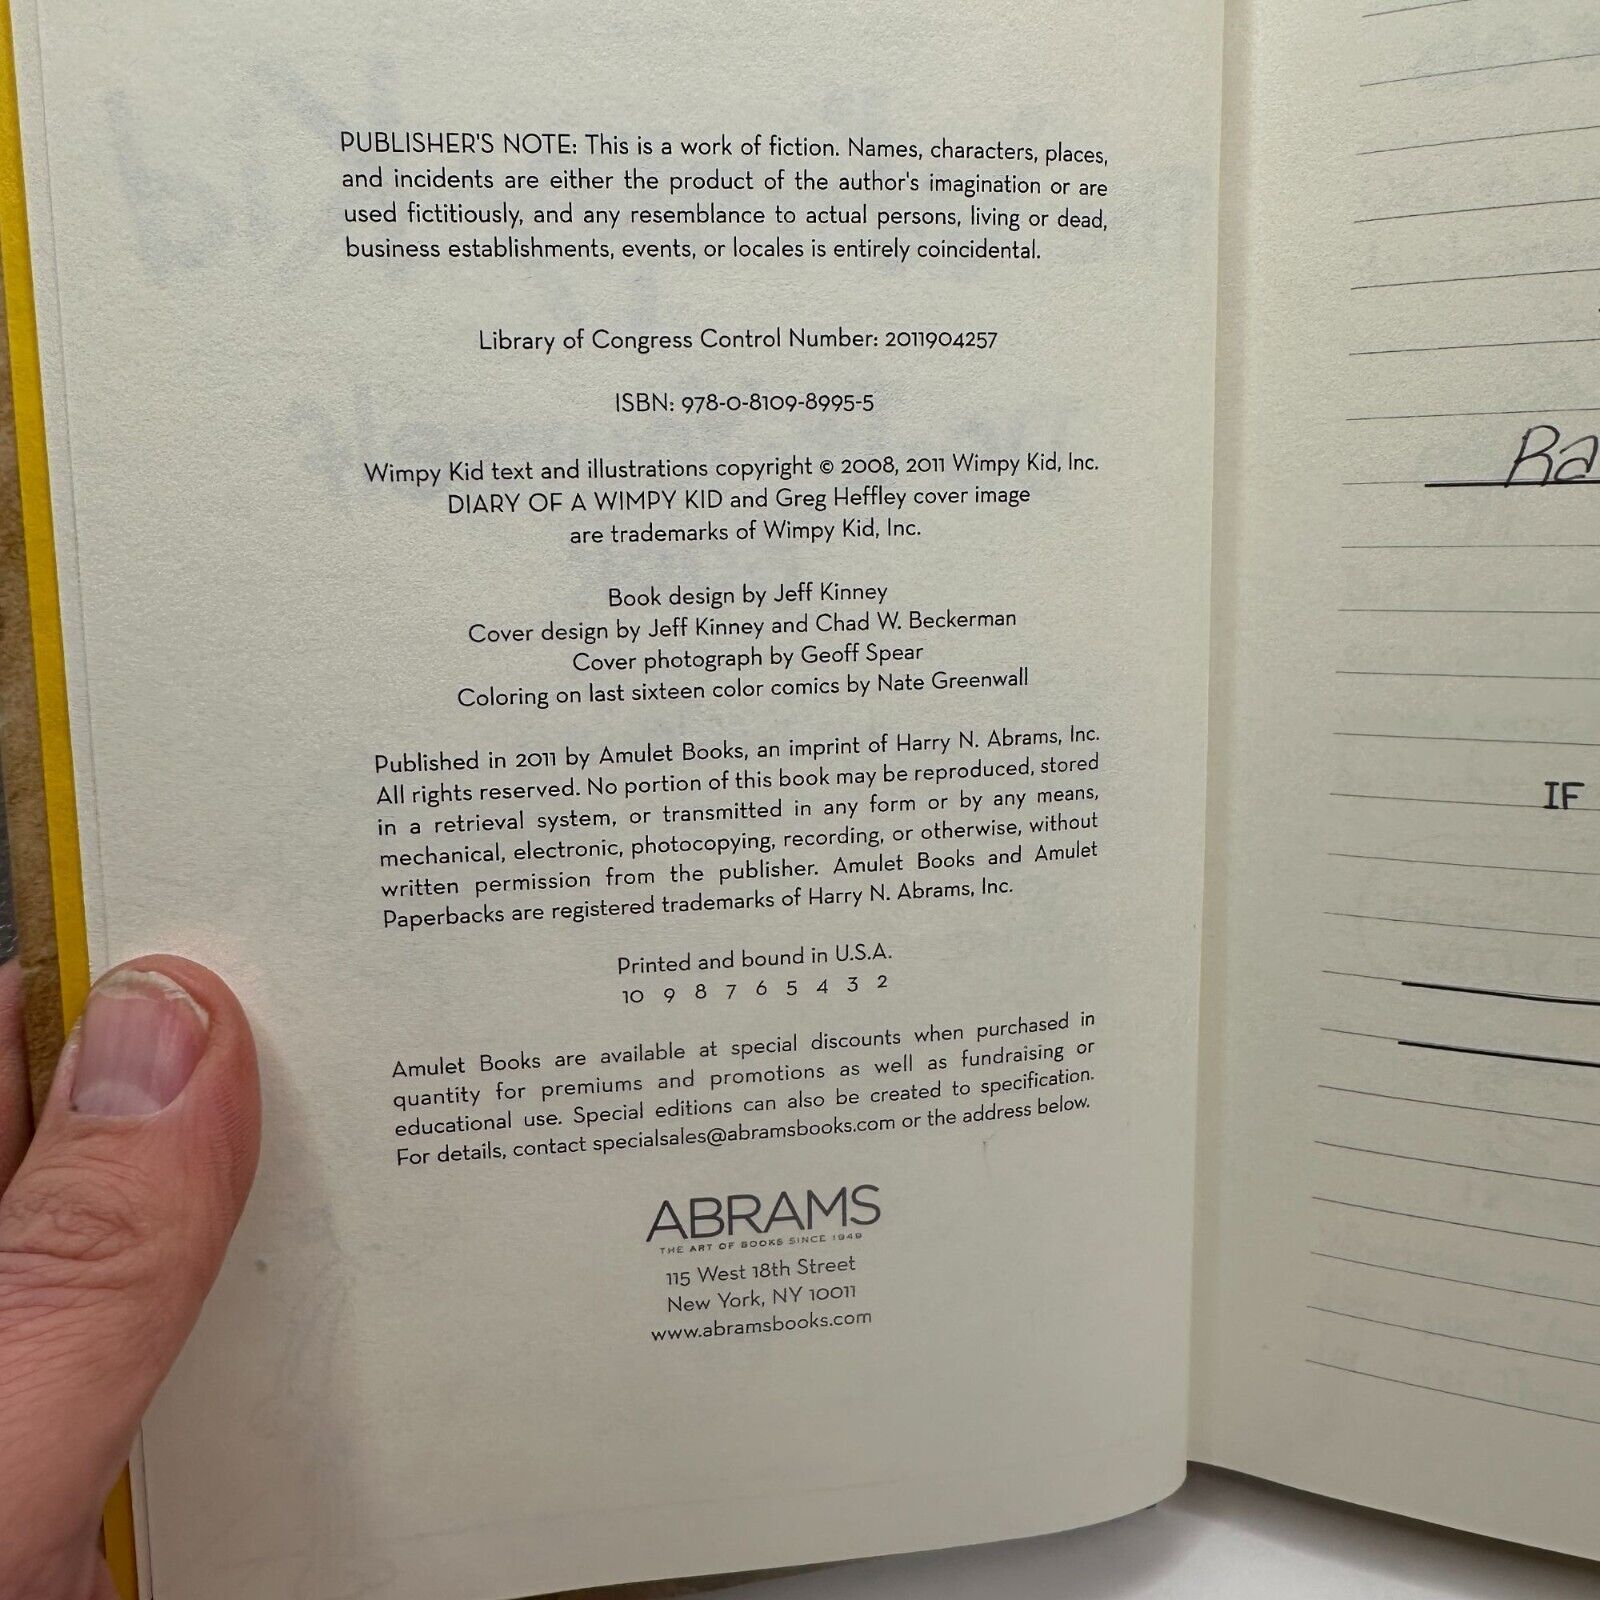 PUBLISHER'S NOTE: This is a work of fiction. Names, characters, places,
and incidents are either the product of the author's imagination or are
used fictitiously, and any resemblance to actual persons, living or dead,
business establishments, events, or locales is entirely coincidental.
Library of Congress Control Number: 2011904257
ISBN: 978-0-8109-8995-5
Wimpy Kid text and illustrations copyright © 2008, 2011 Wimpy Kid, Inc.
DIARY OF A WIMPY KID and Greg Heffley cover image
are trademarks of Wimpy Kid, Inc.
Book design by Jeff Kinney
Cover design by Jeff Kinney and Chad W. Beckerman
Cover photograph by Geoff Spear
Coloring on last sixteen color comics by Nate Greenwall
Published in 2011 by Amulet Books, an imprint of Harry N. Abrams, Inc.
All rights reserved. No portion of this book may be reproduced, stored
in a retrieval system, or transmitted in any form or by any means,
mechanical, electronic, photocopying, recording, or otherwise, without
written permission from the publisher. Amulet Books and Amulet
Paperbacks are registered trademarks of Harry N. Abrams, Inc.
Printed and bound in U.S.A.
10 9 8 7 6 5 4 3 2
Amulet Books are available at special discounts when purchased in
quantity for premiums and promotions as well as fundraising or
educational use. Special editions can also be created to specification.
For details, contact specialsales@abramsbooks.com or the address below.
ABRAMS
THE ART OF BOOKS SINCE 1949
115 West 18th Street
New York, NY 10011
www.abramsbooks.com
IF